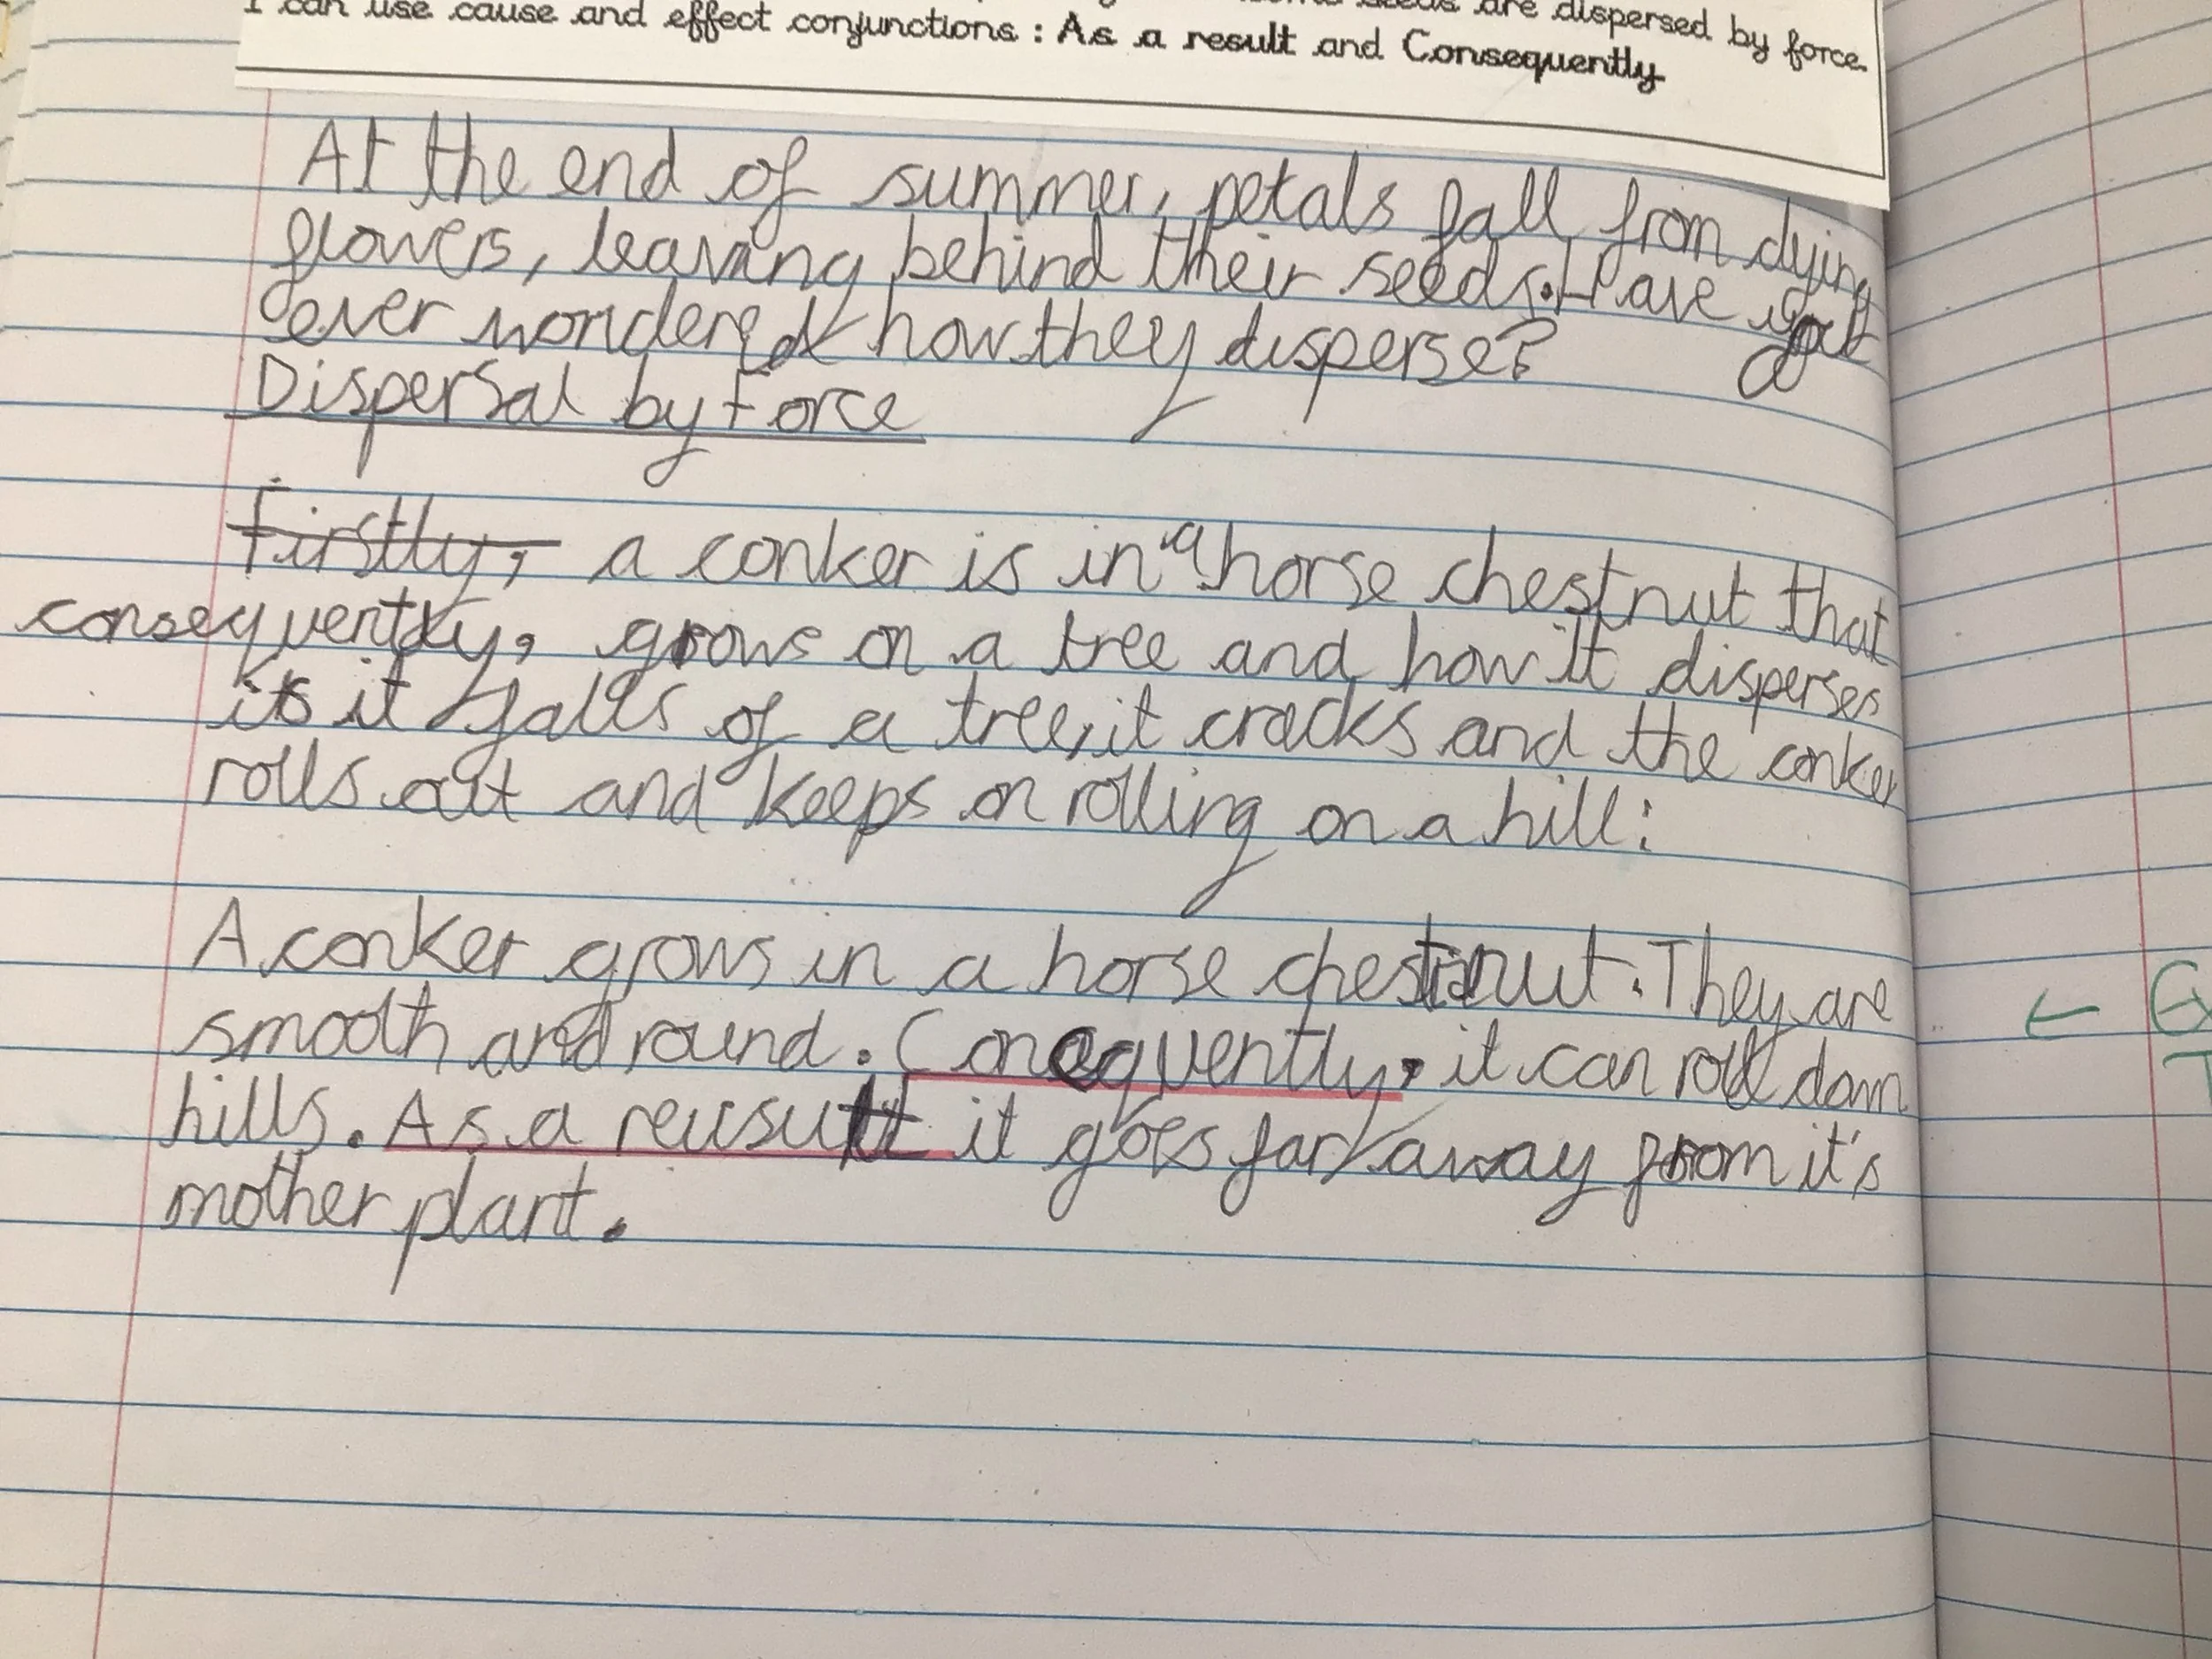 are dispersed by force.
I can use cause and effect conjunctions : As a result and Consequently
At the end of summer, petals fall from dying
flowers, leaving behind their seeds. Have you
ever wondered how they disperse?
Dispersal by Force
Firstly, a conker is in a horse chestnut that
consequently, grows on a tree and how it disperses
is it falls of a tree, it cracks and the conker
rolls out and keeps on rolling on a hill:
A conker grows in a horse chestnut. They are
smooth and round. Conequently, it can roll down
hills. As a reusult it goes far away from it's
mother plant.
←